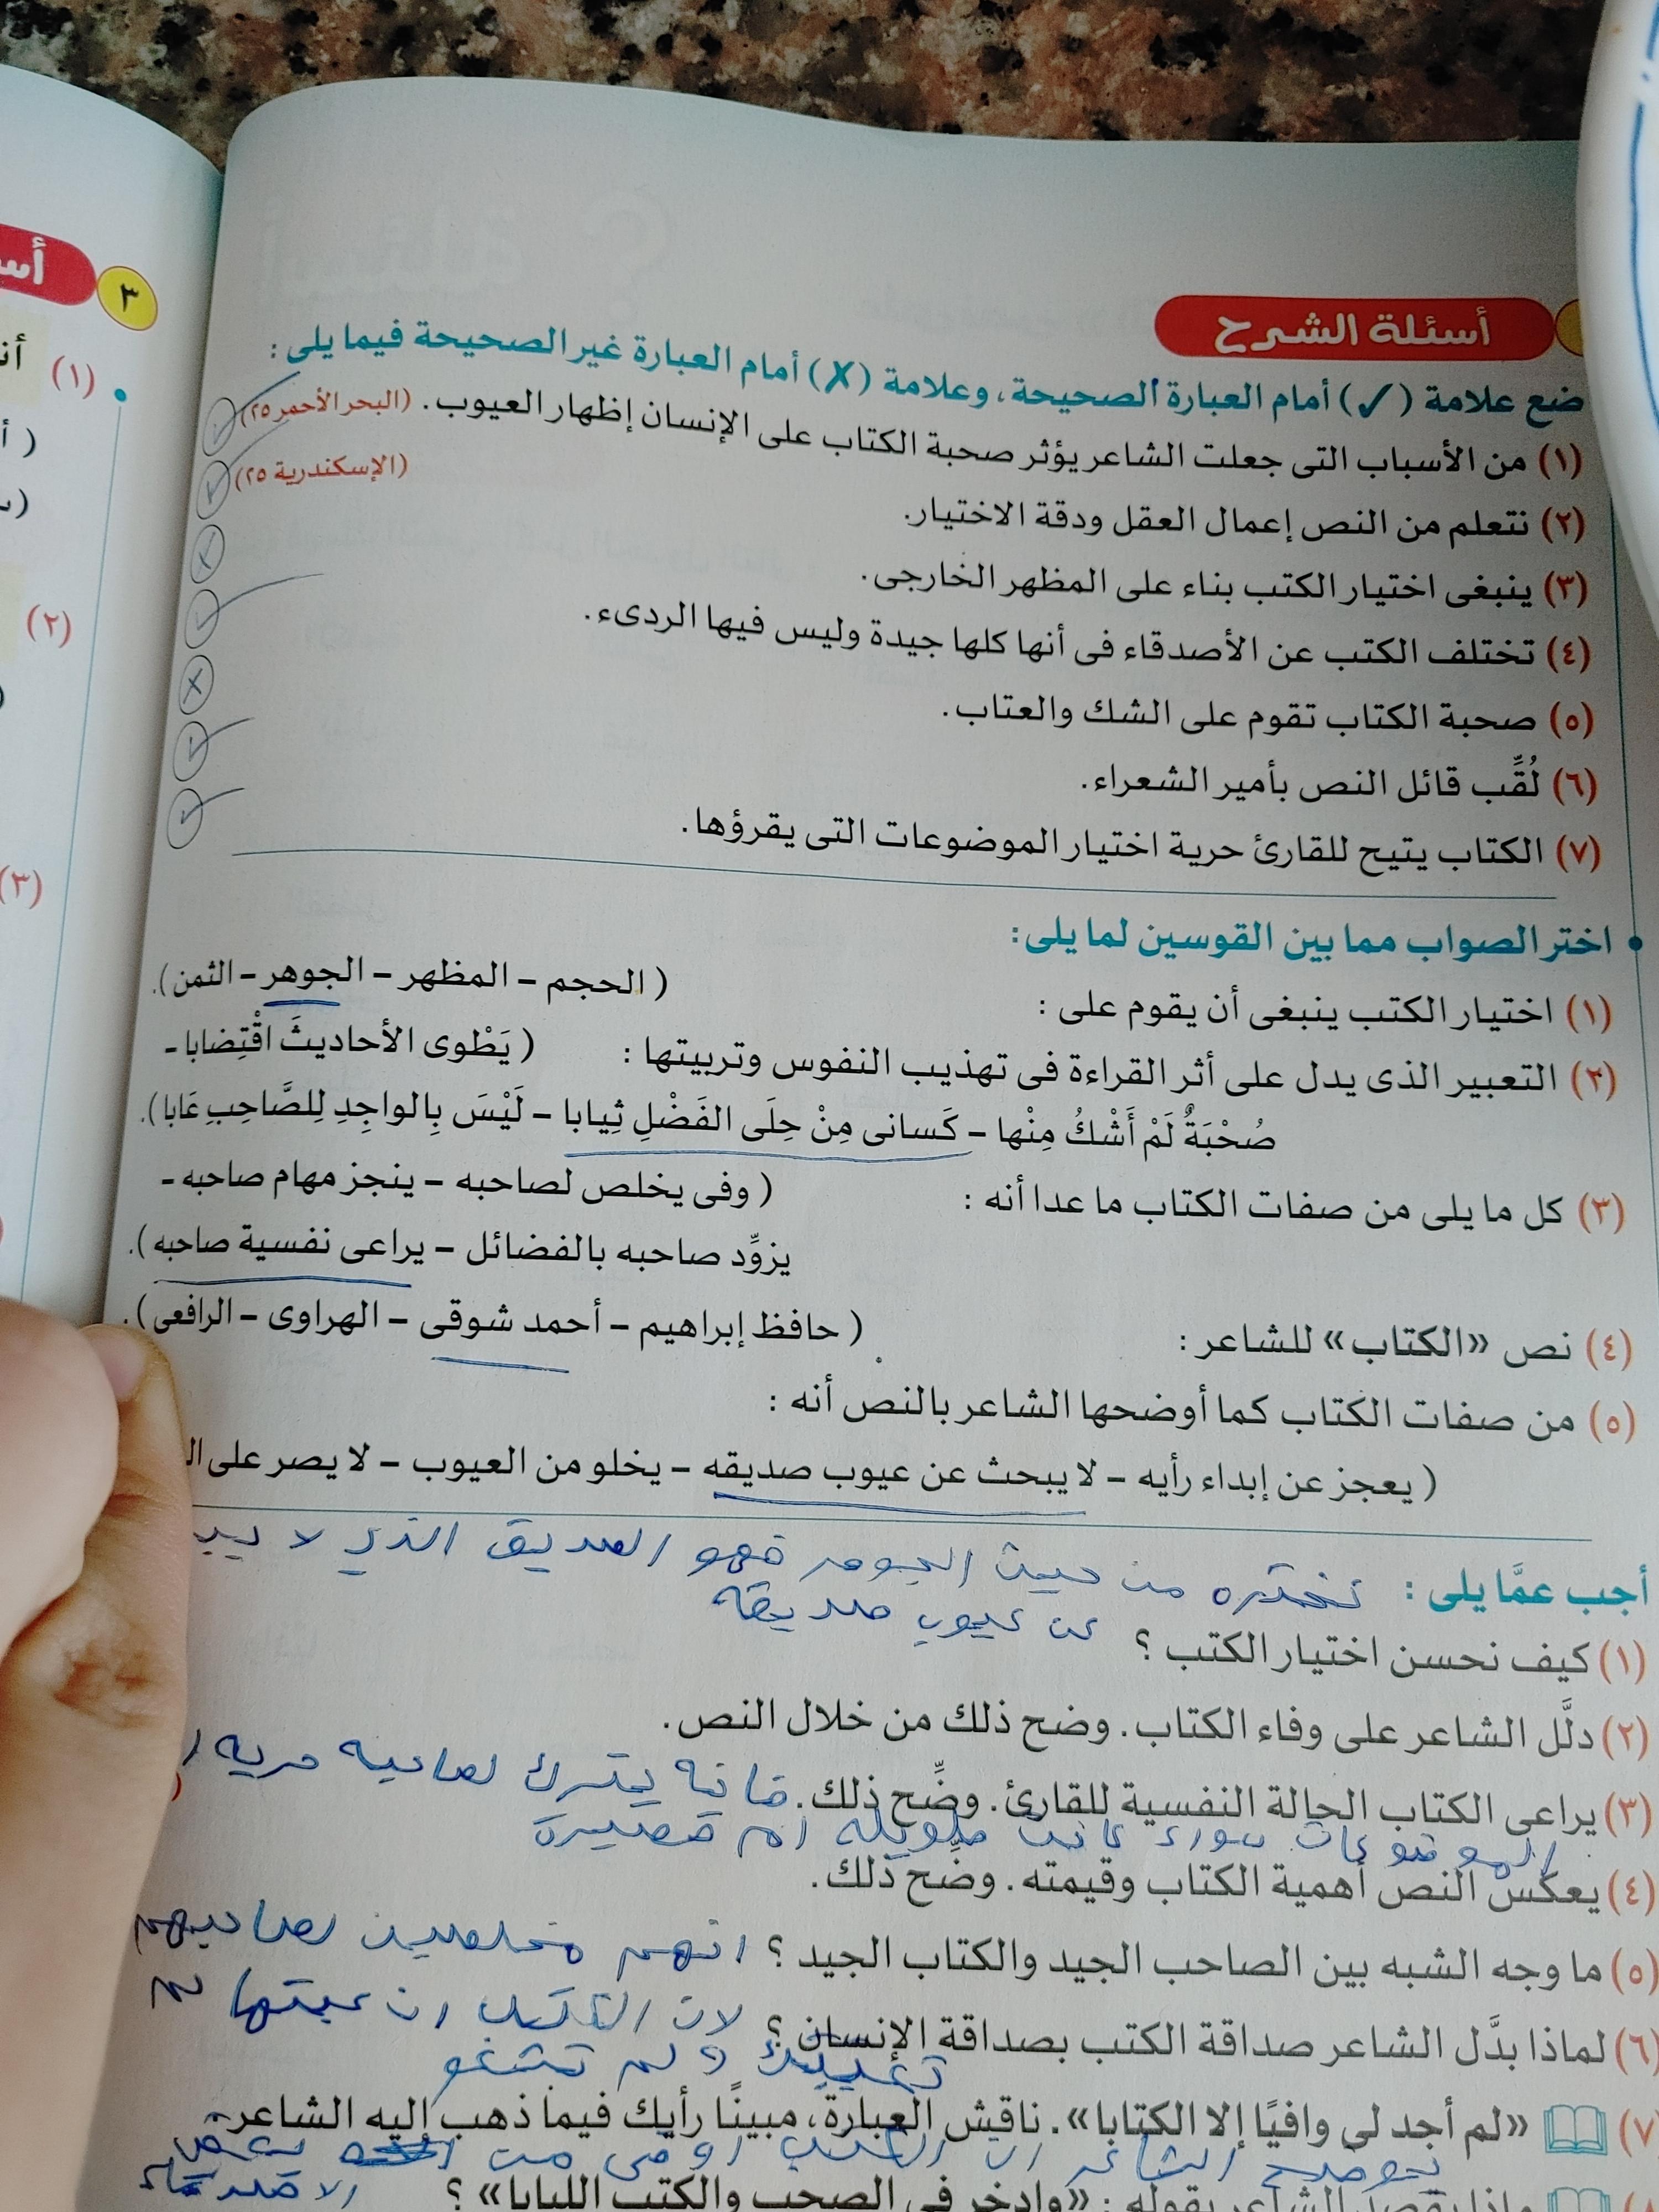 أسئلة الشرح
ضع علامة (✓) أمام العبارة الصحيحة، وعلامة (✗) أمام العبارة غير الصحيحة فيما يلى :
(١) من الأسباب التى جعلت الشاعر يؤثر صحبة الكتاب على الإنسان إظهار العيوب. (البحر الأحمر ٢٥)
(٢) نتعلم من النص إعمال العقل ودقة الاختيار. (الإسكندرية ٢٥)
(٣) ينبغى اختيار الكتب بناء على المظهر الخارجى.
(٤) تختلف الكتب عن الأصدقاء فى أنها كلها جيدة وليس فيها الردىء.
(٥) صحبة الكتاب تقوم على الشك والعتاب.
(٦) لُقِّب قائل النص بأمير الشعراء.
(٧) الكتاب يتيح للقارئ حرية اختيار الموضوعات التى يقرؤها.
اختر الصواب مما بين القوسين لما يلى:
(١) اختيار الكتب ينبغى أن يقوم على : ( الحجم – المظهر – الجوهر – الثمن ).
(٢) التعبير الذى يدل على أثر القراءة فى تهذيب النفوس وتربيتها : ( يَطْوى الأحاديثَ اقْتِضابا –
صُحْبَةٌ لَمْ أَشْكُ مِنْها – كَسانى مِنْ حِلَى الفَضْلِ ثِيابا – لَيْسَ بِالواجِدِ لِلصَّاحِبِ عَابا ).
(٣) كل ما يلى من صفات الكتاب ما عدا أنه : ( وفى يخلص لصاحبه – ينجز مهام صاحبه –
يزوِّد صاحبه بالفضائل – يراعى نفسية صاحبه ).
(٤) نص «الكتاب» للشاعر : ( حافظ إبراهيم – أحمد شوقى – الهراوى – الرافعى ).
(٥) من صفات الكتاب كما أوضحها الشاعر بالنص أنه :
( يعجز عن إبداء رأيه – لا يبحث عن عيوب صديقه – يخلو من العيوب – لا يصر على
أجب عمَّا يلى : نختره من حيث الجوهر فهو الصديق الذي لا
عن عيوب صديقه
(١) كيف نحسن اختيار الكتب ؟
(٢) دلَّل الشاعر على وفاء الكتاب. وضح ذلك من خلال النص.
(٣) يراعى الكتاب الحالة النفسية للقارئ. وضِّح ذلك. فانه يترك لصاحبه حريه
الموضوعات سواء كانت طويله ام قصيرة
(٤) يعكس النص أهمية الكتاب وقيمته. وضِّح ذلك.
(٥) ما وجه الشبه بين الصاحب الجيد والكتاب الجيد ؟ انهم مخلصين لصاحبهم
(٦) لماذا بدَّل الشاعر صداقة الكتب بصداقة الإنسان ؟ لان الكتب ان عبتها
(٧) «لم أجد لى وافيًا إلا الكتابا». ناقش العبارة، مبينًا رأيك فيما ذهب إليه الشاعر.
الشاعر ان الكتب اوفى من بعض
الاصدقاء
ماذا يقصد الشاعر بقوله : «وادخر فى الصحب والكتب اللبابا» ؟
٣
(١)
(٢)
(٣)